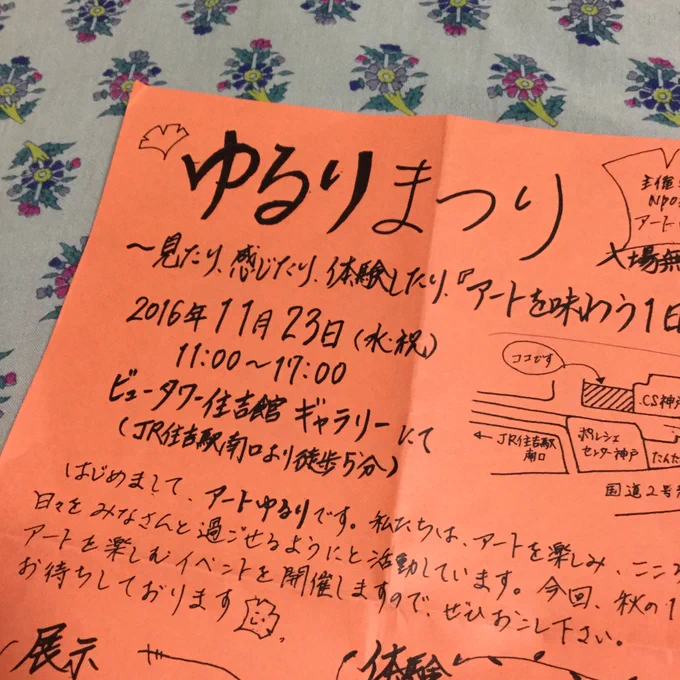 ゆるりまつり
主催
NPO
アート
入場無
〜見たり、感じたり、体験したり、『アートを味わう1日
2016年 11月23日(水・祝)
11:00〜17:00
ビュータワー住吉館 ギャラリーにて
(JR住吉駅南口より徒歩5分)
ココです
CS神戸
←JR住吉駅
南口
ポルシェ
センター神戸
たんた
国道2号
はじめまして、アートゆるりです。私たちは、アートを楽しみ、こころ
日々をみなさんと過ごせるようにと活動しています。今回、秋の1
アートを楽しむイベントを開催しますので、ぜひおこし下さい。
お待ちしております
展示
体験